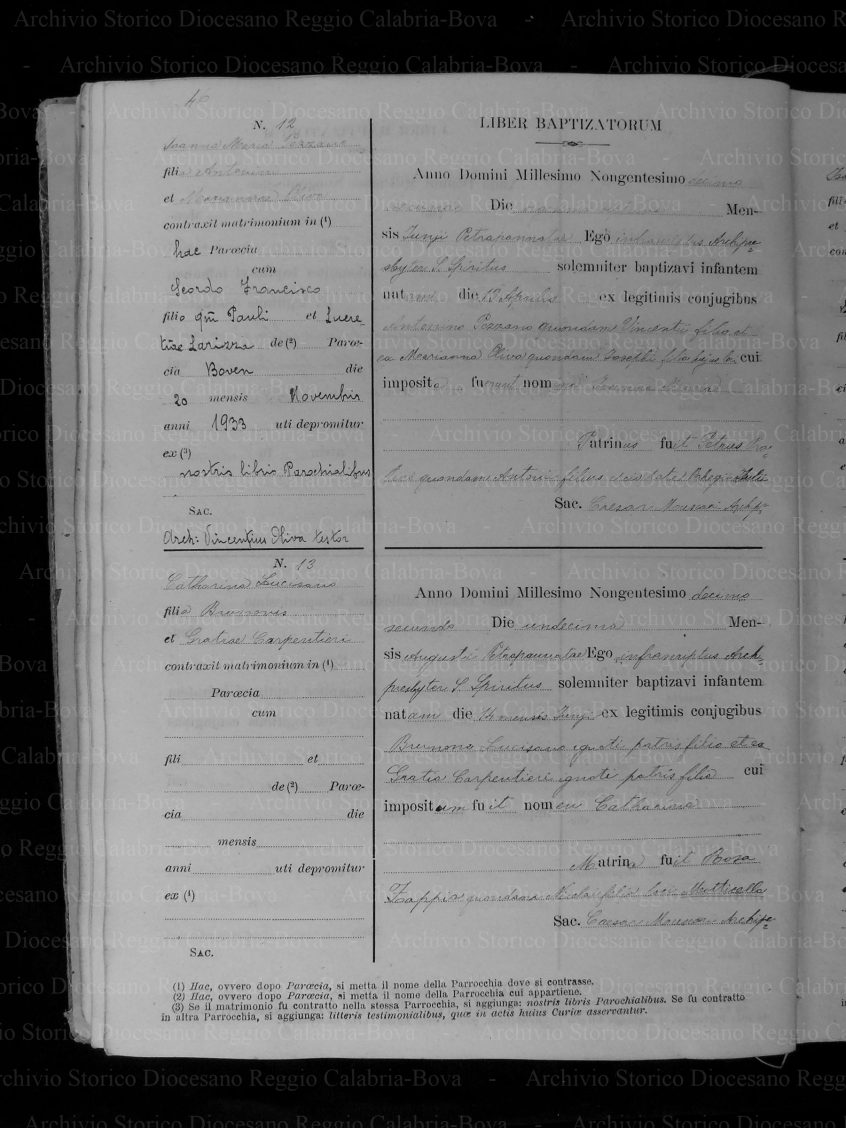 Archivio Storico Diocesano Reggio Calabria-Bova
40
N. 12
Joanna Maria Pezzano
filia Antonini
et Mariannae Oliva
contraxit matrimonium in (1)
hac Parœcia
cum
Scordo Francisco
filio qm Pauli et Lucre-
tiae Larizza de (2) Parœ-
cia Boven die
20 mensis Novembris
anni 1933 uti depromitur
ex (3)
nostris libris Parochialibus
SAC.
Arch: Vincentius Oliva testor
N. 13
Catharina Lucisano
filia Brunonis
et Gratiae Carpentieri
contraxit matrimonium in (1)
Parœcia
cum
fili et
de (2) Parœ-
cia die
mensis
anni uti depromitur
ex (1)
SAC.
LIBER BAPTIZATORUM
Anno Domini Millesimo Nongentesimo decimo
secundo Die Men-
sis Junji Petrapannatae Ego infrascriptus Archipre-
sbyter S. Spiritus solemniter baptizavi infantem
natam die 13 Aprilis ex legitimis conjugibus
Antonino Pezzano quondam Vincentii filio et
ea Marianna Oliva quondam Josephi filia cui
imposita fuerunt nomina Joanna Maria
Patrinus fuit Petrus
quondam Antonii filius civitate Rhegii Julii
Sac. Caesar Archip.
Anno Domini Millesimo Nongentesimo decimo
secundo Die undecima Men-
sis Augusti Petrapannatae Ego infrascriptus Archi-
presbyter S. Spiritus solemniter baptizavi infantem
natam die mensis Junji ex legitimis conjugibus
Brunone Lucisano ignoti patris filio et ea
Gratia Carpentieri ignoti patris filia cui
impositum fuit nomen Catharina
Matrina fuit Rosa
Zappia quondam filia
Sac. Caesar Archip.
(1) Hac, ovvero dopo Parœcia, si metta il nome della Parrocchia dove si contrasse.
(2) Hac, ovvero dopo Parœcia, si metta il nome della Parrocchia cui appartiene.
(3) Se il matrimonio fu contratto nella stessa Parrocchia, si aggiunga: nostris libris Parochialibus. Se fu contratto
in altra Parrocchia, si aggiunga: litteris testimonialibus, quæ in actis huius Curiæ asservantur.